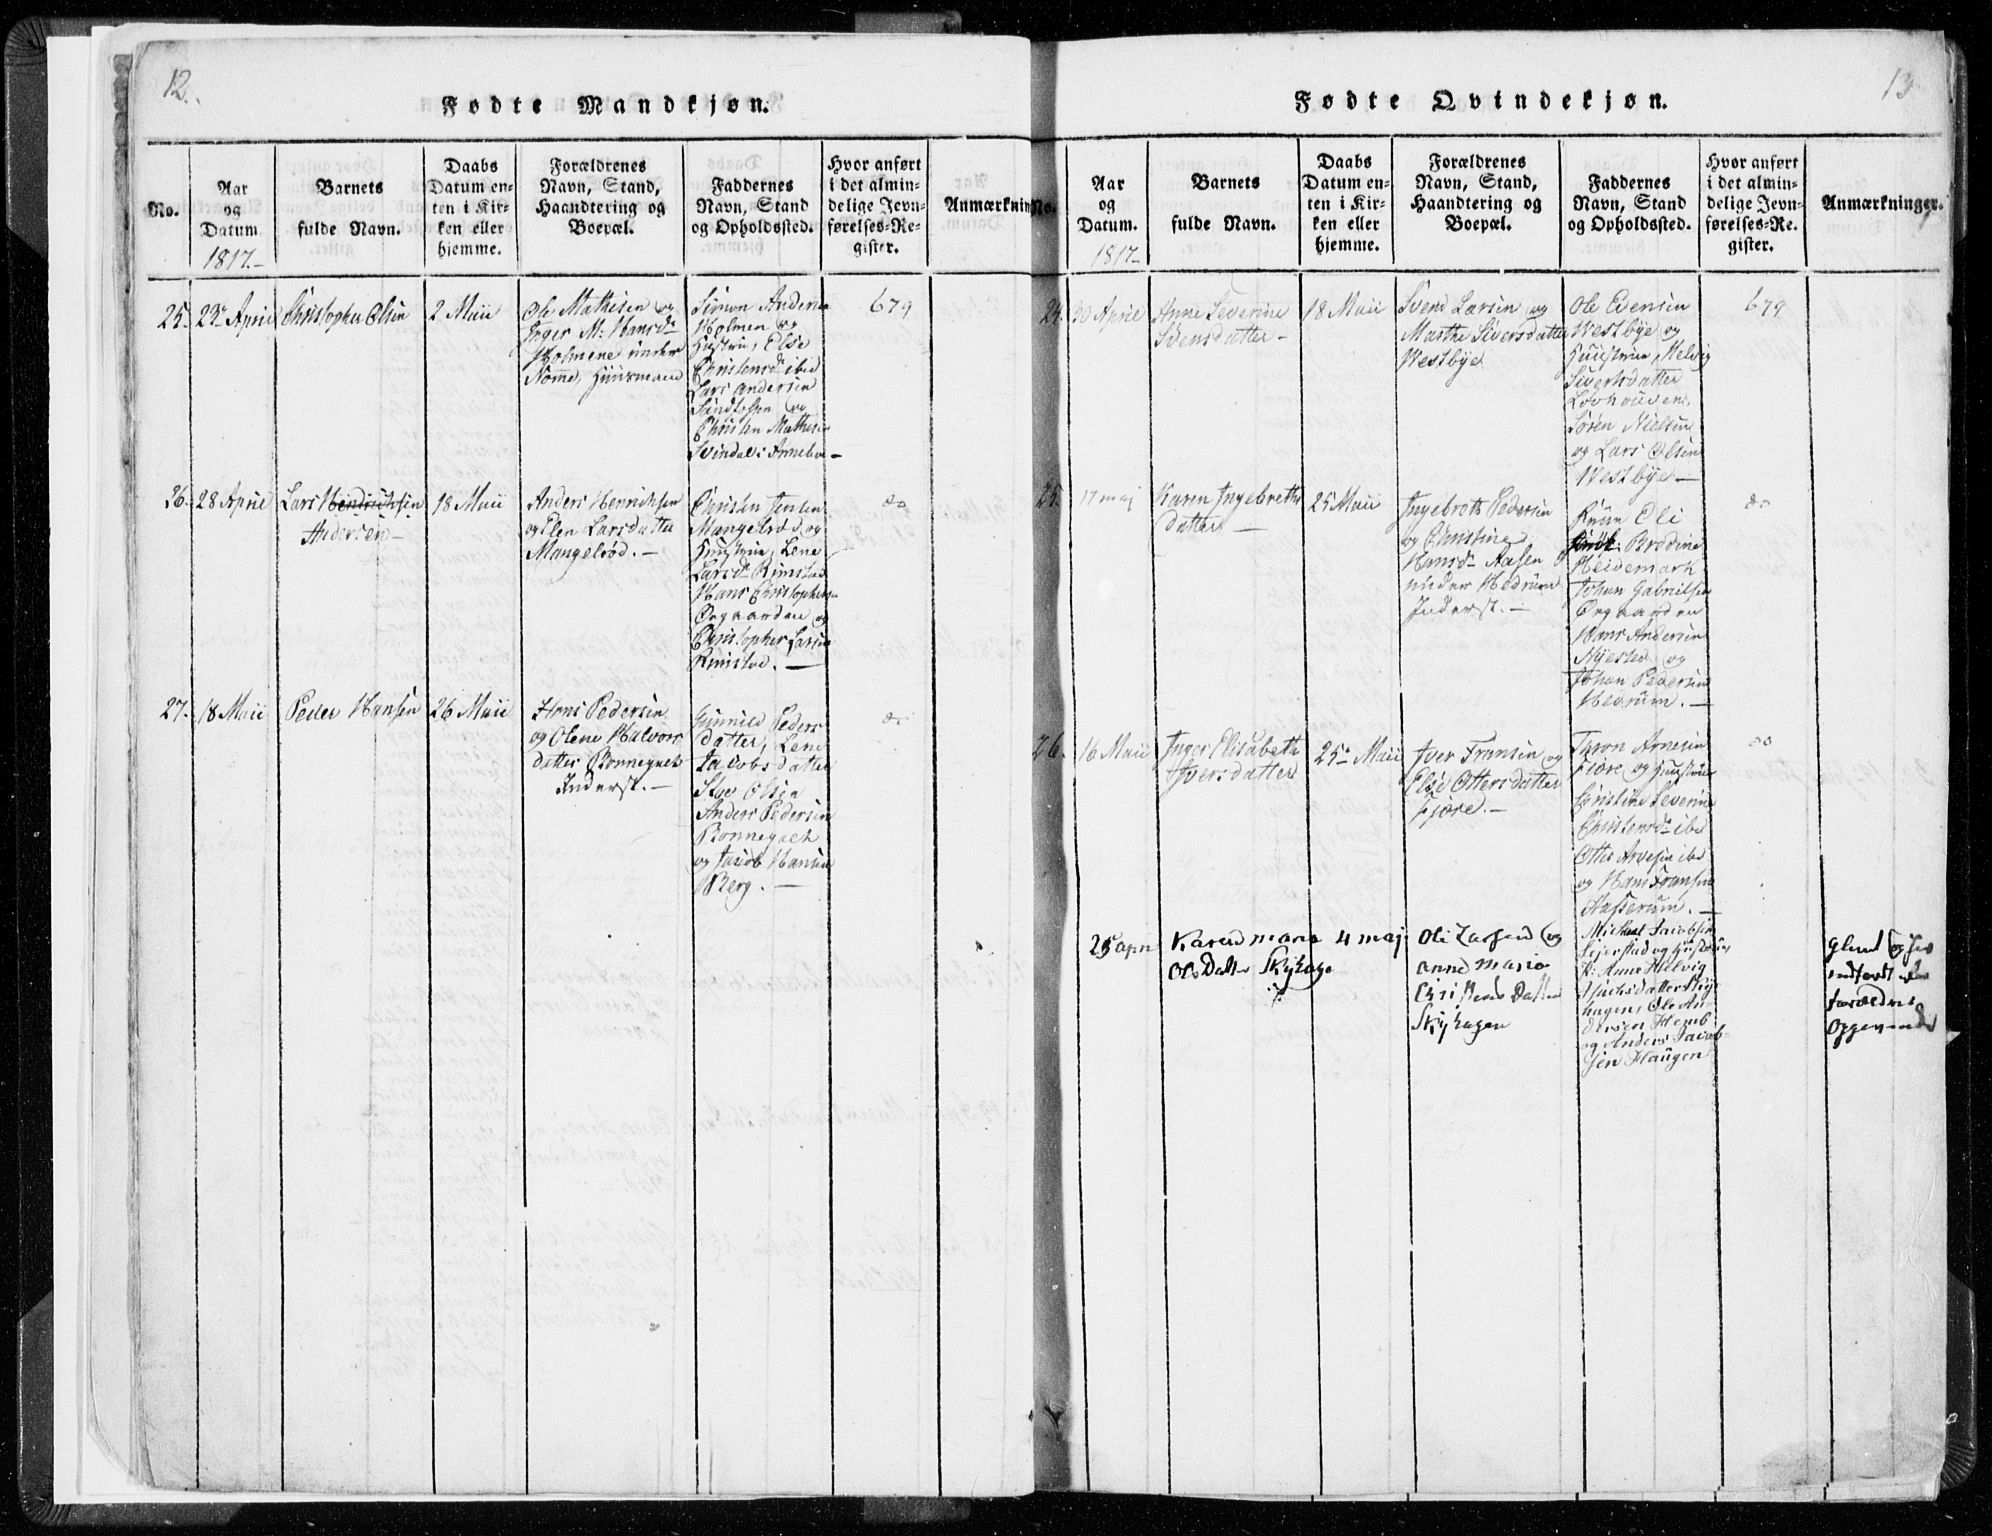 12.
Fødte Mandkjøn.
No.
Aar
og
Datum
1817.-
Barnets
fulde Navn.
Daabs
Datum en-
ten i Kir-
ken eller
hjemme.
Forældrenes
Navn, Stand,
Haandtering og
Boepæl.
Faddernes
Navn, Stand
og Opholdssted.
Hvor anført
i det almin-
delige Jevn-
førelses-Re-
gister.
Anmærknin
25.
23de April
Christopher Olsen
2 Maii
Ole Mathisen og
Inger M: Hansdr
Holmene under
Nomme, Huusmand
Simon Andersen
Holmen og
Hustrue, Else
Christensdr ibid
Lars Andersen
og
Christen Mathisen
Svindal: Annebu -
679
26.
28 April
Lars Hendrichsen
Andersen -
18 Maii
Anders Henrichsen
og Elen Larsdatter
Mangelrød. -
Christen Jensen
Mangelrød og
Huustrue, Lene
Larsdr Rimstad
Hans Christophersen
Ørgaarden og
Christopher Larsen
Rimstad. -
do
27.
18 Maii
Peder Hansen
26 Maii
Hans Pedersen
og Olene Halvors
datter Bonnegolt
Inderst. -
Gunnild Peders
datter, Lene
Jacobsdatter
Olsen
Anders Pedersen
og Jacob Hansen
Berg. -
do
13
Fødte Qvindekjøn.
No.
Aar
og
Datum.
1817-
Barnets
fulde Navn.
Daabs
Datum en-
ten i Kir-
ken eller
hjemme.
Forældrenes
Navn, Stand,
Haandtering og
Boepæl.
Faddernes
Navn, Stand
og Opholdssted.
Hvor anført
i det almin-
delige Jevn-
førelses-Re-
gister.
Anmærkninger.
24.
30 April
Anne Severine
Svensdatter -
18 Maii
Svend Larsen og
Marthe Siversdatter
Westbye
Ole Evensen
Westbye og
Huustrue, Helvig
Sivertsdatter
Søren Nielsen
og Lars Olsen
Westbye -
679
25.
17 maj
Karen Ingebreths
datter -
25 Maii
Ingebreth Pedersen
og Christine
Hansdr Aasen
under Hedrum
Inderst. -
Oli
Brodine
Heidemark
Johan Gabrielsen
Ørgaarden
Hans Andersen
Nyested og
Johan Pedersen
Hedrum. -
do
26.
16 Maii
Inger Elisabeth
Iversdatter
25de Maii
Iver Fransen og
Else Ottersdatter
Fjøre. -
Thron Arnesen
Fiøre og Huustrue
Christine Severine
Christensdr ibid
Otter Arvesen ibid
og Hans Fransen
Aasserum. -
do
25 apri
Karen maria
Ols Datter Skyhage
4 maj
Oli Larsen og
Anne Maria
Christens Datter
Skyhagen
Michael Jacobsen
Seierstad og Hustrue
P: Anne Helvig
Isachsdatter Skye
hagen, Ole An-
dersen Hemb
og Anders Jacob-
sen Haugen
glemt og her
indført
foreldres
opgivende